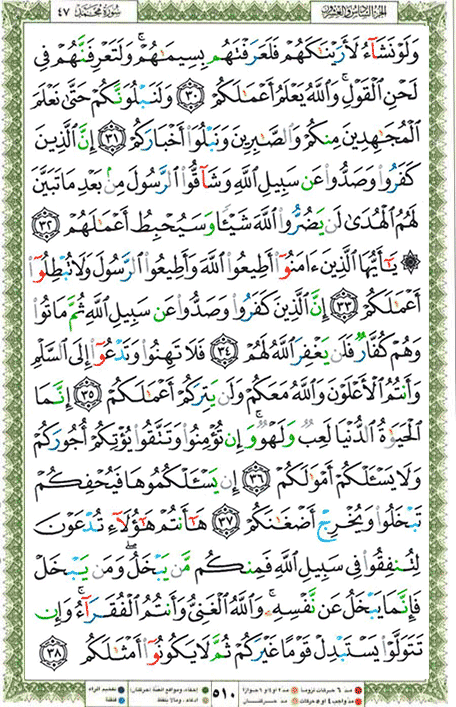 سُورَةُ مُحَمَّد ٤٧
الجُزءُ السَّادِسُ وَالعِشرُونَ
وَلَوْ نَشَآءُ لَأَرَيْنَٰكَهُمْ فَلَعَرَفْتَهُم بِسِيمَٰهُمْ ۚ وَلَتَعْرِفَنَّهُمْ فِى
لَحْنِ ٱلْقَوْلِ ۚ وَٱللَّهُ يَعْلَمُ أَعْمَٰلَكُمْ ٣٠ وَلَنَبْلُوَنَّكُمْ حَتَّىٰ نَعْلَمَ
ٱلْمُجَٰهِدِينَ مِنكُمْ وَٱلصَّٰبِرِينَ وَنَبْلُوَا۟ أَخْبَارَكُمْ ٣١ إِنَّ ٱلَّذِينَ
كَفَرُوا۟ وَصَدُّوا۟ عَن سَبِيلِ ٱللَّهِ وَشَآقُّوا۟ ٱلرَّسُولَ مِنۢ بَعْدِ مَا تَبَيَّنَ
لَهُمُ ٱلْهُدَىٰ لَن يَضُرُّوا۟ ٱللَّهَ شَيْـًٔا وَسَيُحْبِطُ أَعْمَٰلَهُمْ ٣٢
۞ يَٰٓأَيُّهَا ٱلَّذِينَ ءَامَنُوٓا۟ أَطِيعُوا۟ ٱللَّهَ وَأَطِيعُوا۟ ٱلرَّسُولَ وَلَا تُبْطِلُوٓا۟
أَعْمَٰلَكُمْ ٣٣ إِنَّ ٱلَّذِينَ كَفَرُوا۟ وَصَدُّوا۟ عَن سَبِيلِ ٱللَّهِ ثُمَّ مَاتُوا۟
وَهُمْ كُفَّارٌ فَلَن يَغْفِرَ ٱللَّهُ لَهُمْ ٣٤ فَلَا تَهِنُوا۟ وَتَدْعُوٓا۟ إِلَى ٱلسَّلْمِ
وَأَنتُمُ ٱلْأَعْلَوْنَ وَٱللَّهُ مَعَكُمْ وَلَن يَتِرَكُمْ أَعْمَٰلَكُمْ ٣٥ إِنَّمَا
ٱلْحَيَوٰةُ ٱلدُّنْيَا لَعِبٌ وَلَهْوٌ ۚ وَإِن تُؤْمِنُوا۟ وَتَتَّقُوا۟ يُؤْتِكُمْ أُجُورَكُمْ
وَلَا يَسْـَٔلْكُمْ أَمْوَٰلَكُمْ ٣٦ إِن يَسْـَٔلْكُمُوهَا فَيُحْفِكُمْ
تَبْخَلُوا۟ وَيُخْرِجْ أَضْغَٰنَكُمْ ٣٧ هَٰٓأَنتُمْ هَٰٓؤُلَآءِ تُدْعَوْنَ
لِتُنفِقُوا۟ فِى سَبِيلِ ٱللَّهِ فَمِنكُم مَّن يَبْخَلُ ۖ وَمَن يَبْخَلْ
فَإِنَّمَا يَبْخَلُ عَن نَّفْسِهِۦ ۚ وَٱللَّهُ ٱلْغَنِىُّ وَأَنتُمُ ٱلْفُقَرَآءُ ۚ وَإِن
تَتَوَلَّوْا۟ يَسْتَبْدِلْ قَوْمًا غَيْرَكُمْ ثُمَّ لَا يَكُونُوٓا۟ أَمْثَٰلَكُم ٣٨
مد ٦ حركات لزوما
مد ٢ او ٤ او ٦ جوازا
مد واجب ٤ او ٥ حركات
مد حركتان
٥١٠
إخفاء، ومواقع الغنة (حركتان)
ادغام، ومالا يلفظ
تفخيم الراء
قلقلة